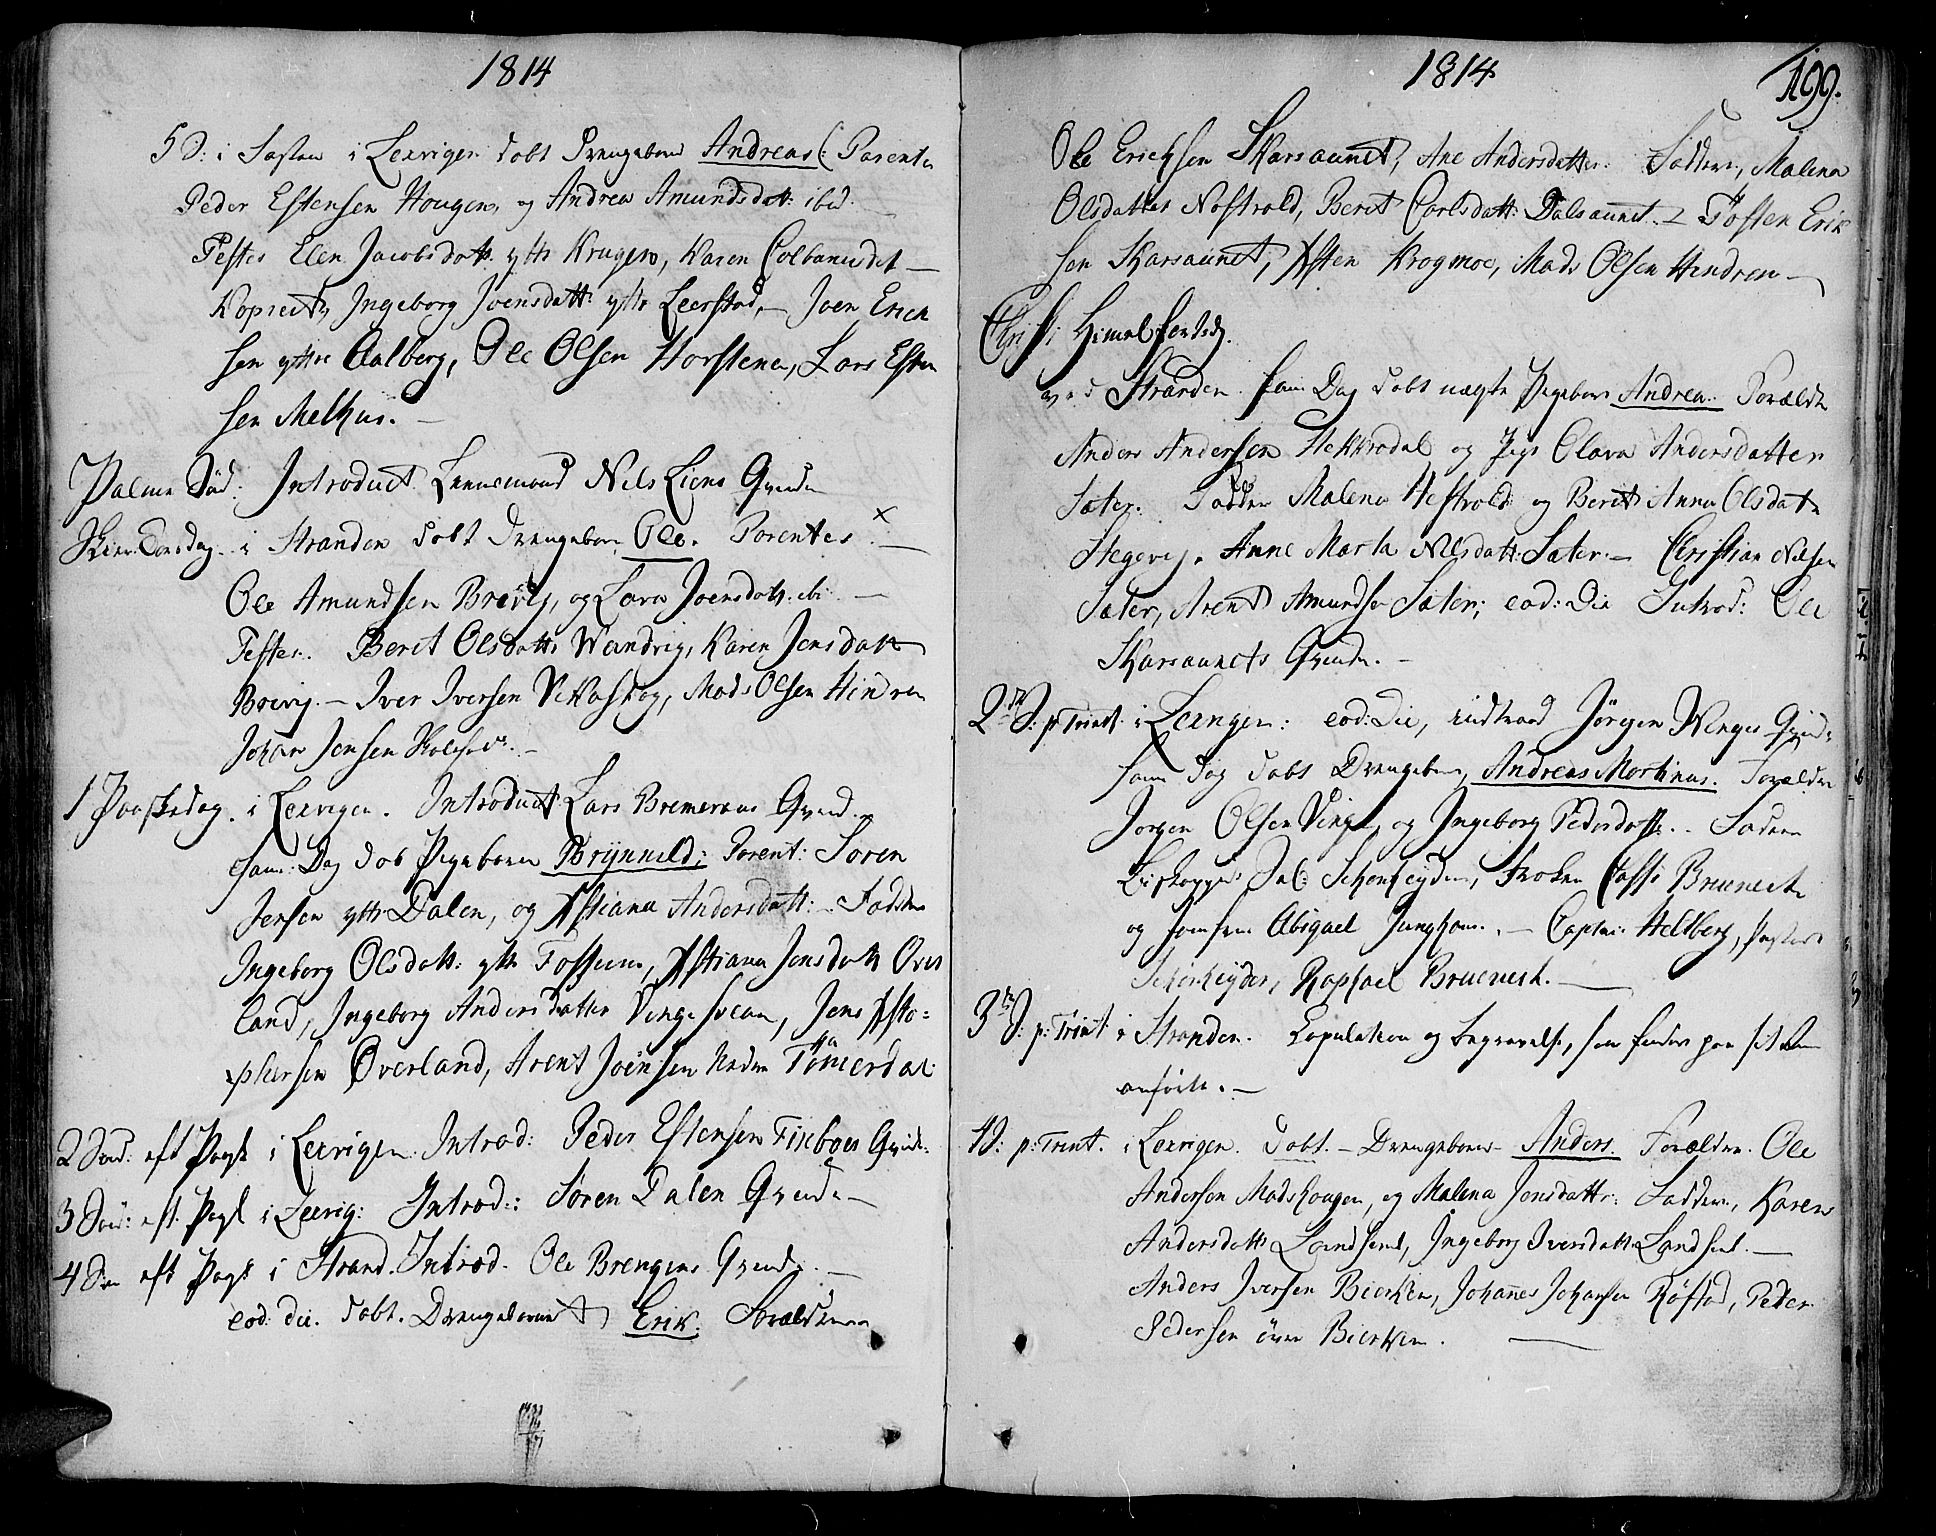 1814
5 S: i Fasten i Lexvigen døbt Drengebarn Andreas (: Parenter
Peder Estensen Hougen, og Andrea Amundsdatt: ibid.
Testes Elen Jacobsdatt. yttr Krugsvo, Karen Colbanusdat
Kopreit, Ingeborg Joensdatt: yttr Leerstad, – Joen Erick
sen yttre Aalberg, Ole Olsen Horstena, Lars Esten
sen Melhus. –
Palme Sød: Introduct Leensmand Nils Liens Qvinde
Skier Torsdag i Stranden døbt Drengebarn Ole. Parentes
Ole Amundsen Brevig, og Lava Joensdatt: ibi –
Testes. Beret Olsdatt: Wandvig, Karen Jensdatt
Brevig. – Iver Iversen Vekaskog, Mads Olsen Hindren
Johan Jensen
1 Paaskedag. i Lexvigen. Introduct: Lars Bremeraas Qvind.
Sam: Dag døb Pigebarn Brynnild: Parent: Søren
Jensen yttr Dalen, og Xstiana Andersdatt: – Fadder
Ingeborg Olsdatt: yttr Fossum, Xstiana Jensdatt Over
land, Ingeborg Andersdatter Vinge Svean, Jens Xsto=
phersen Overland, Arent Joensen Nedre Tømerdal
2 Sønd: eft Paask i Lexvigen Introd: Peder Estensen Qvinde.
3 Søn: eft. Paask i Lexvig: Introd: Søren Dalen Qvinde –
4 Søn eft Paask i Strand. Introd. Ole Brengens Qvinde. –
eod: die. døbt. Drengebarnet Erik. Forældrene
1814 199.
Ole Ericksen Skarsaunet, Ane Andersdatter. Faddere, Malena
Olsdatter Nostvold, Beret Carlsdatt: Dalsaunet. – Tosten Erik
sen Skarsaunet, Xsten Krogmoe, Mads Olsen Hindren –
Christi Himelfartsdg.
ved Stranden sam: Dag døbt uægte Pigebarn Andrea. Forældre
Anders Andersen Hekkrodal og Pige Olava Andersdatter
Sæter. Faddere Malena Nostvold og Berit Anna Olsdatr
Stegevig. Anne Marta Nilsdatt: Sæter. – Christian Nilsen
Sæter, Arent Amundsen Sæter; eod: Die Introd: Ole
Skarsaunets Qvinde. –
2 S: p: Trint: i Lexvigen: eod: Die, indtraad Jørgen Winges Qvinde
sam Dag døbt Drengebarn, Andreas Martinus. Forældre
Jørgen Olsen Vinge, og Ingeborg Pedersdatt. Faddere
Biskoppens Sal: Schonheyder, Frøken Bruenech
og Jomfru Abigael Junghans. – Captain Heltberg, Pastor
Schonheyder, Raphael Bruenech. –
3 S: p: Trint: i Stranden. Copulation og Begravelse, som findes paa sit Rum
anførte. –
4 S: p: Trint. i Lexvigen. døbt. – Drengebarn Anders. Forældre. Ole
Andersen Madshougen, og Malena Jonsdatt: Faddere, Karen
Andersdatt: Landsend, Ingeborg Iversdatt Landsend. –
Anders Iversen Bierken, Johannes Johansen Røstad, Peder
Pedersen øvre Bierken. –